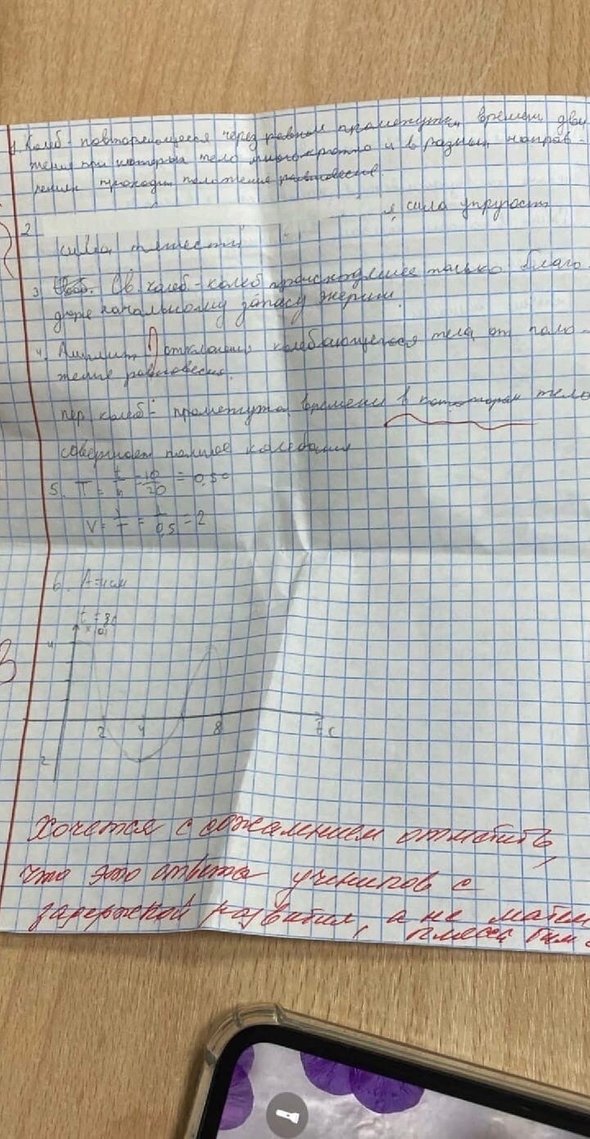 1. Колеб - повторяющееся через равном прометуткы времени дви
жения при которых тело многократно и в разных направ-
лениях проходит положение равновесие
2. сила упругост
сила тяжести
3 Св колеб - колеб происходящее только благо
даре начальному запасу энергии.
4. Амплит отклонния колеблющегося тела от поло-
жение равновесия.
пер колеб - прометуток времени в котором тело
совершает полное колебания
5. T = t/n = 10/20 = 0,5 с
V = 1/T = 1/0,5 = 2
6. A = 4 см
4
2 4 8
t, c
2
Хочется с сожалением отметить,
что это ответы учеников с
задержкой развития, а не матем
класса гим.